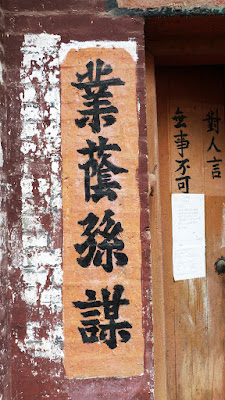 業蔭孫謀
無事不可
對人言